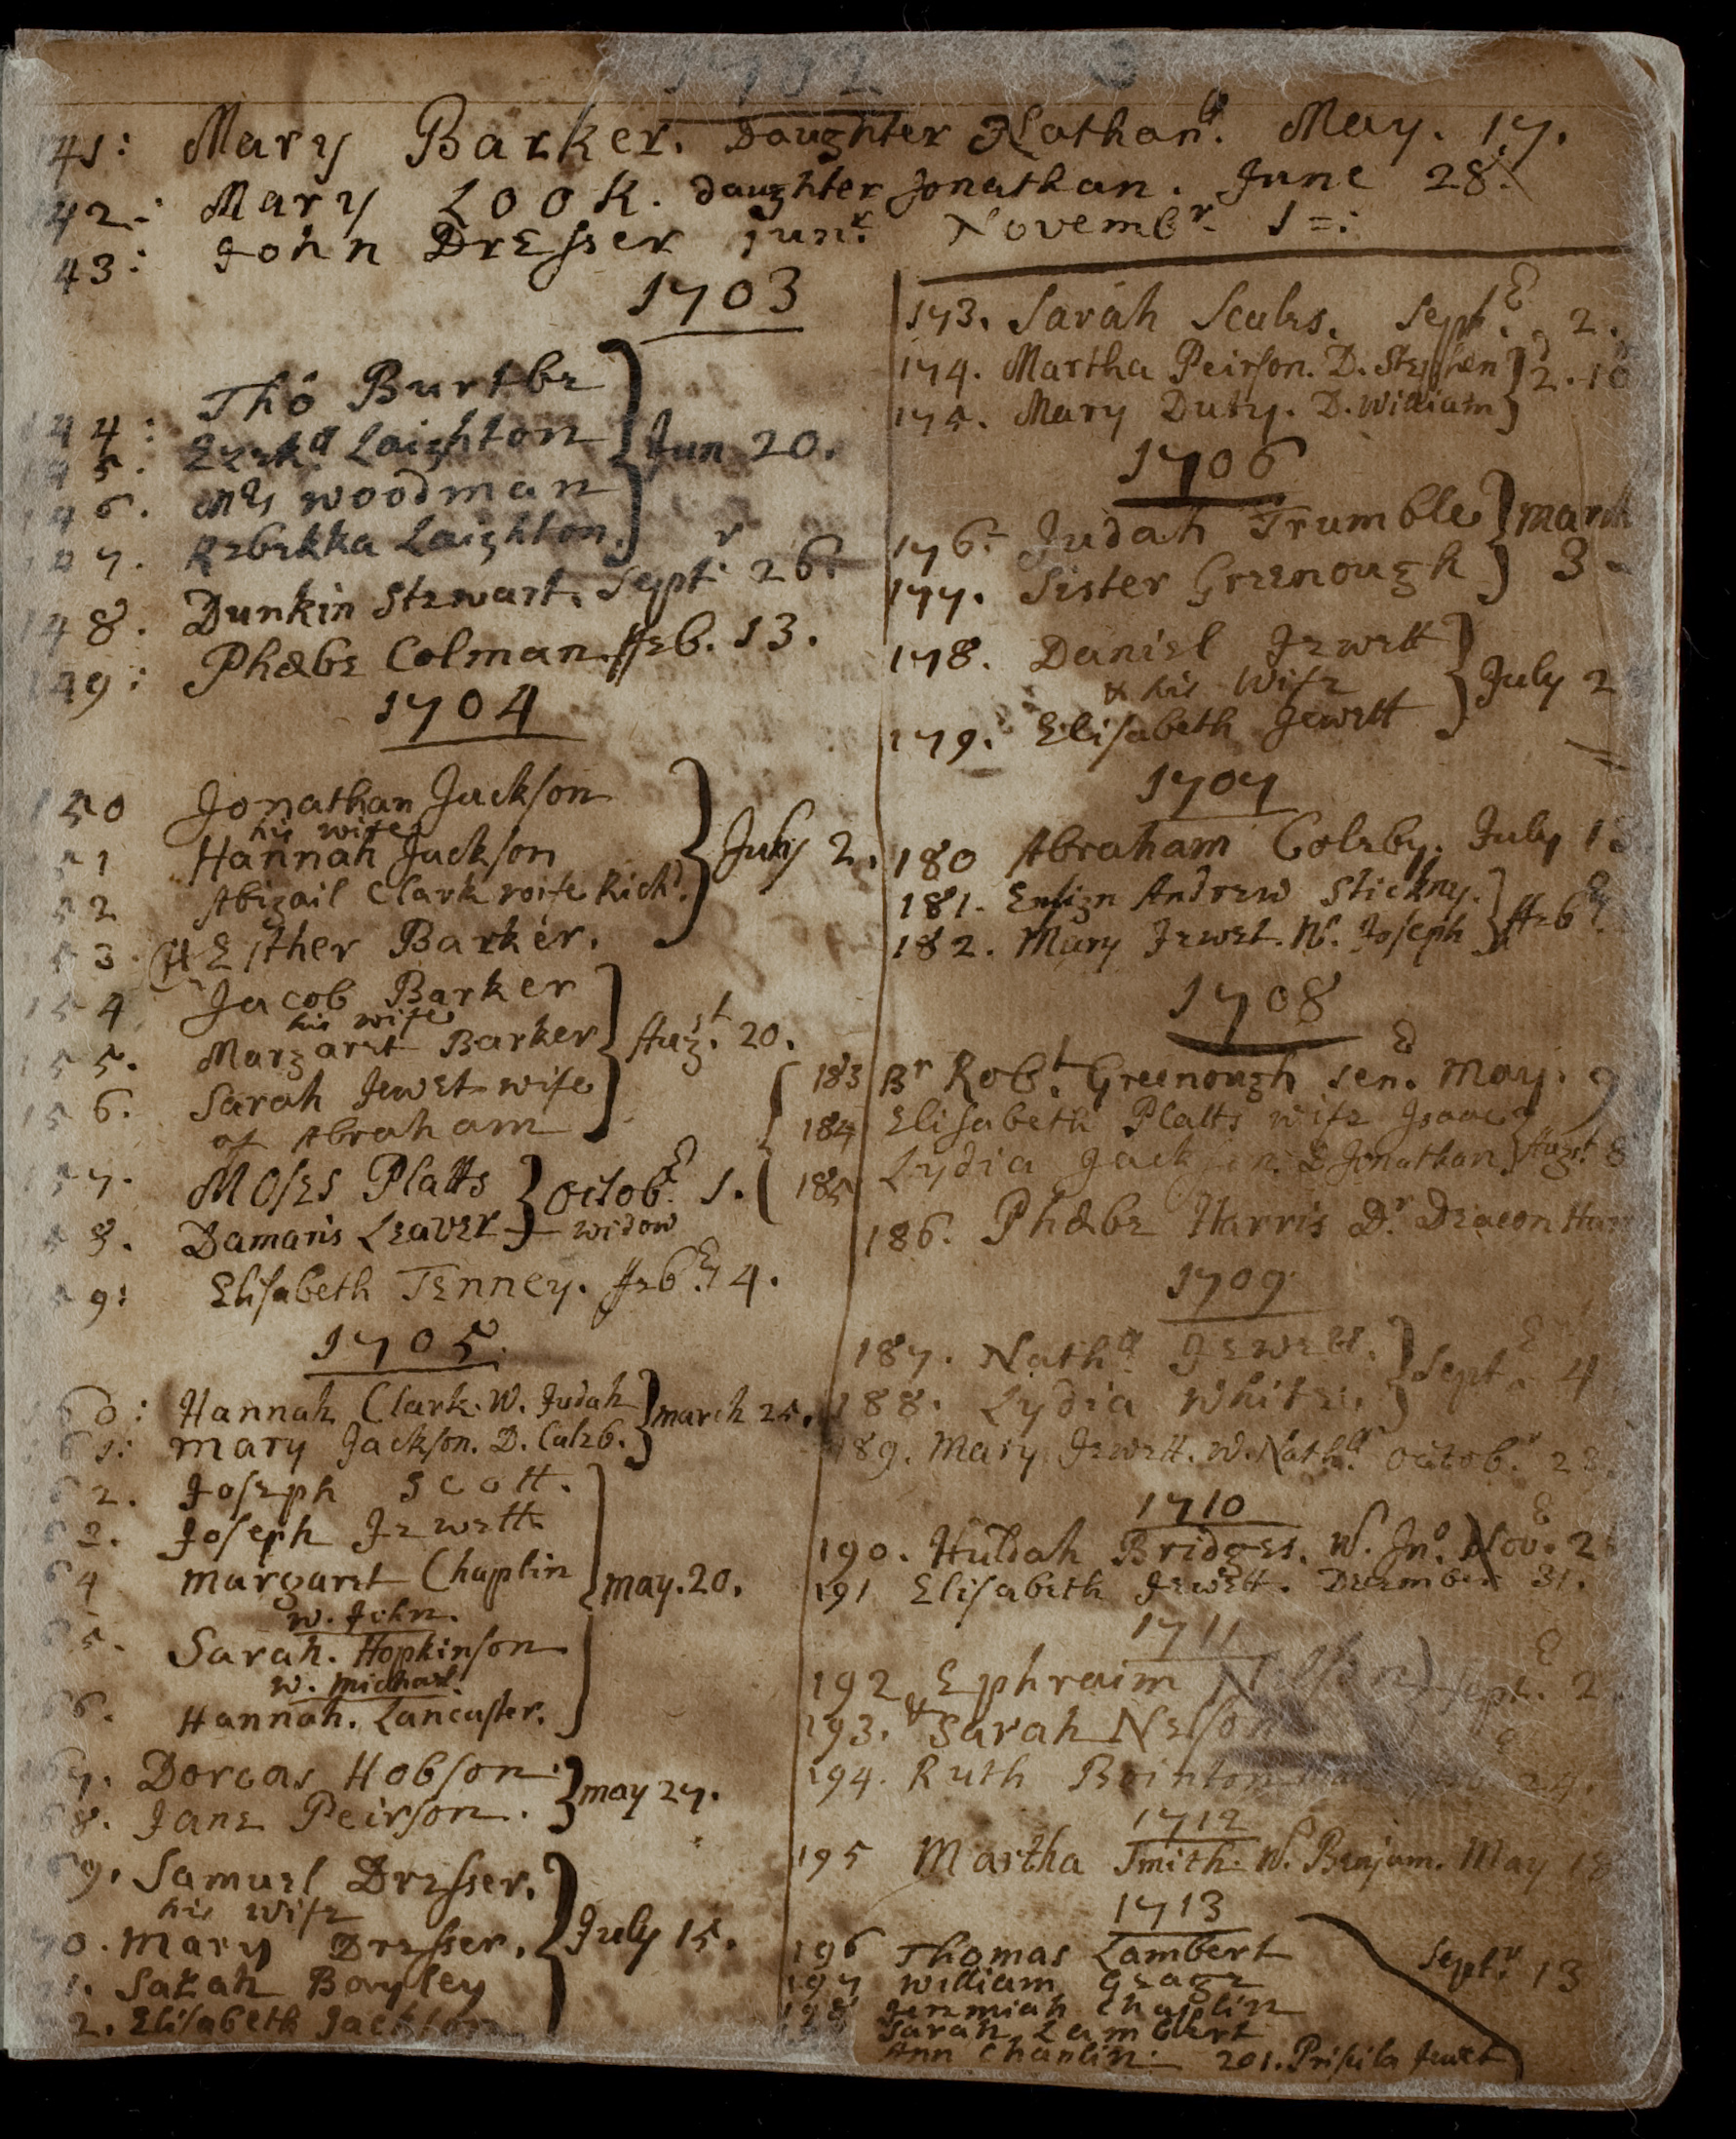 1702
141: Mary Barker. Daughter Nathan^ll. May. 17.
142: Mary Look. daughter Jonathan. June 28.
43: John Dresser iun^r. Novemb^r. 1=:
1703
144: Thô Burkbe
145. Ezek^ll Laighton
146. M^rs Woodman
147. Rebekka Laighton.
} Jun 20.
148. Dunkin Stewart. Sept^r 26.
149: Phæbe Colman. Feb. 13.
1704
150 Jonathan Jackson
his wife
51 Hannah Jackson
52 Abigail Clark wife Rich^d.
53. Esther Barker.
} July 2.
154 Jacob Barker
his wife
155. Margaret Barker
156. Sarah Jewet wife
of Abraham
} Aug^t. 20.
157. Moses Platts
58. Damaris Leaver
} Octob^r. 1.
widow
59: Elisabeth Tenney. Feb^r 4.
1705
60: Hannah Clark. W. Judah
61: Mary Jackson. D. Caleb.
} march 25.
62. Joseph Scott.
62. Joseph Jewett
64 Margaret Chaplin
W. John.
65. Sarah. Hopkinson
W. Michael
66. Hannah. Lancaster.
} may. 20.
167. Dorcas Hobson.
68. Jane Peirson.
} may 27.
169. Samuel Dresser.
his wife
70. Mary Dresser.
71. Sarah Bayley
2. Elisabeth Jackson
} July 15.
173. Sarah Scales. Sept^r. 2.
174. Martha Peirson. D. Stephen
175. Mary Duty. D. William
} 2. 10
1706
176. Judah Trumble
177. Sister Greenough
} march 3
178. Daniel Jewett
& his Wife
179. Elisabeth Jewett
} July 2
1707
180 Abraham Coleby. July 1
181. Ensign Andrew Stickny.
182. Mary Jewet. W. Joseph
} Feb^r.
1708
183 B^r Rob^t. Greenough sen^r. May. 9
184 Elisabeth Platts wife Isaac
185 Lydia Jackson. D Jonathan
} Aug^t. 8
186. Phæbe Harris D^r. Deacon Har
1709
187. Nath^ll Jewett.
188. Lydia White.
} Sept^r. 4
189. Mary Jewett. W. Nath^ll Octob^r. 23.
1710
190. Huldah Bridges. W. Jn^o. Nov^r. 2
191 Elisabeth Jewett. December 31.
1711
192 Ephraim Nelson
193. & Sarah Nelson
} Sept^r. 2
194. Ruth Bointon 24.
1712
195 Martha Smith. W. Benjam. May 18
1713
196 Thomas Lambert
197 William Geage
198 Jeremiah Chaplin
Sarah Lambert
Ann Chaplin. 201. Prisila Jewet
Sept^r. 13